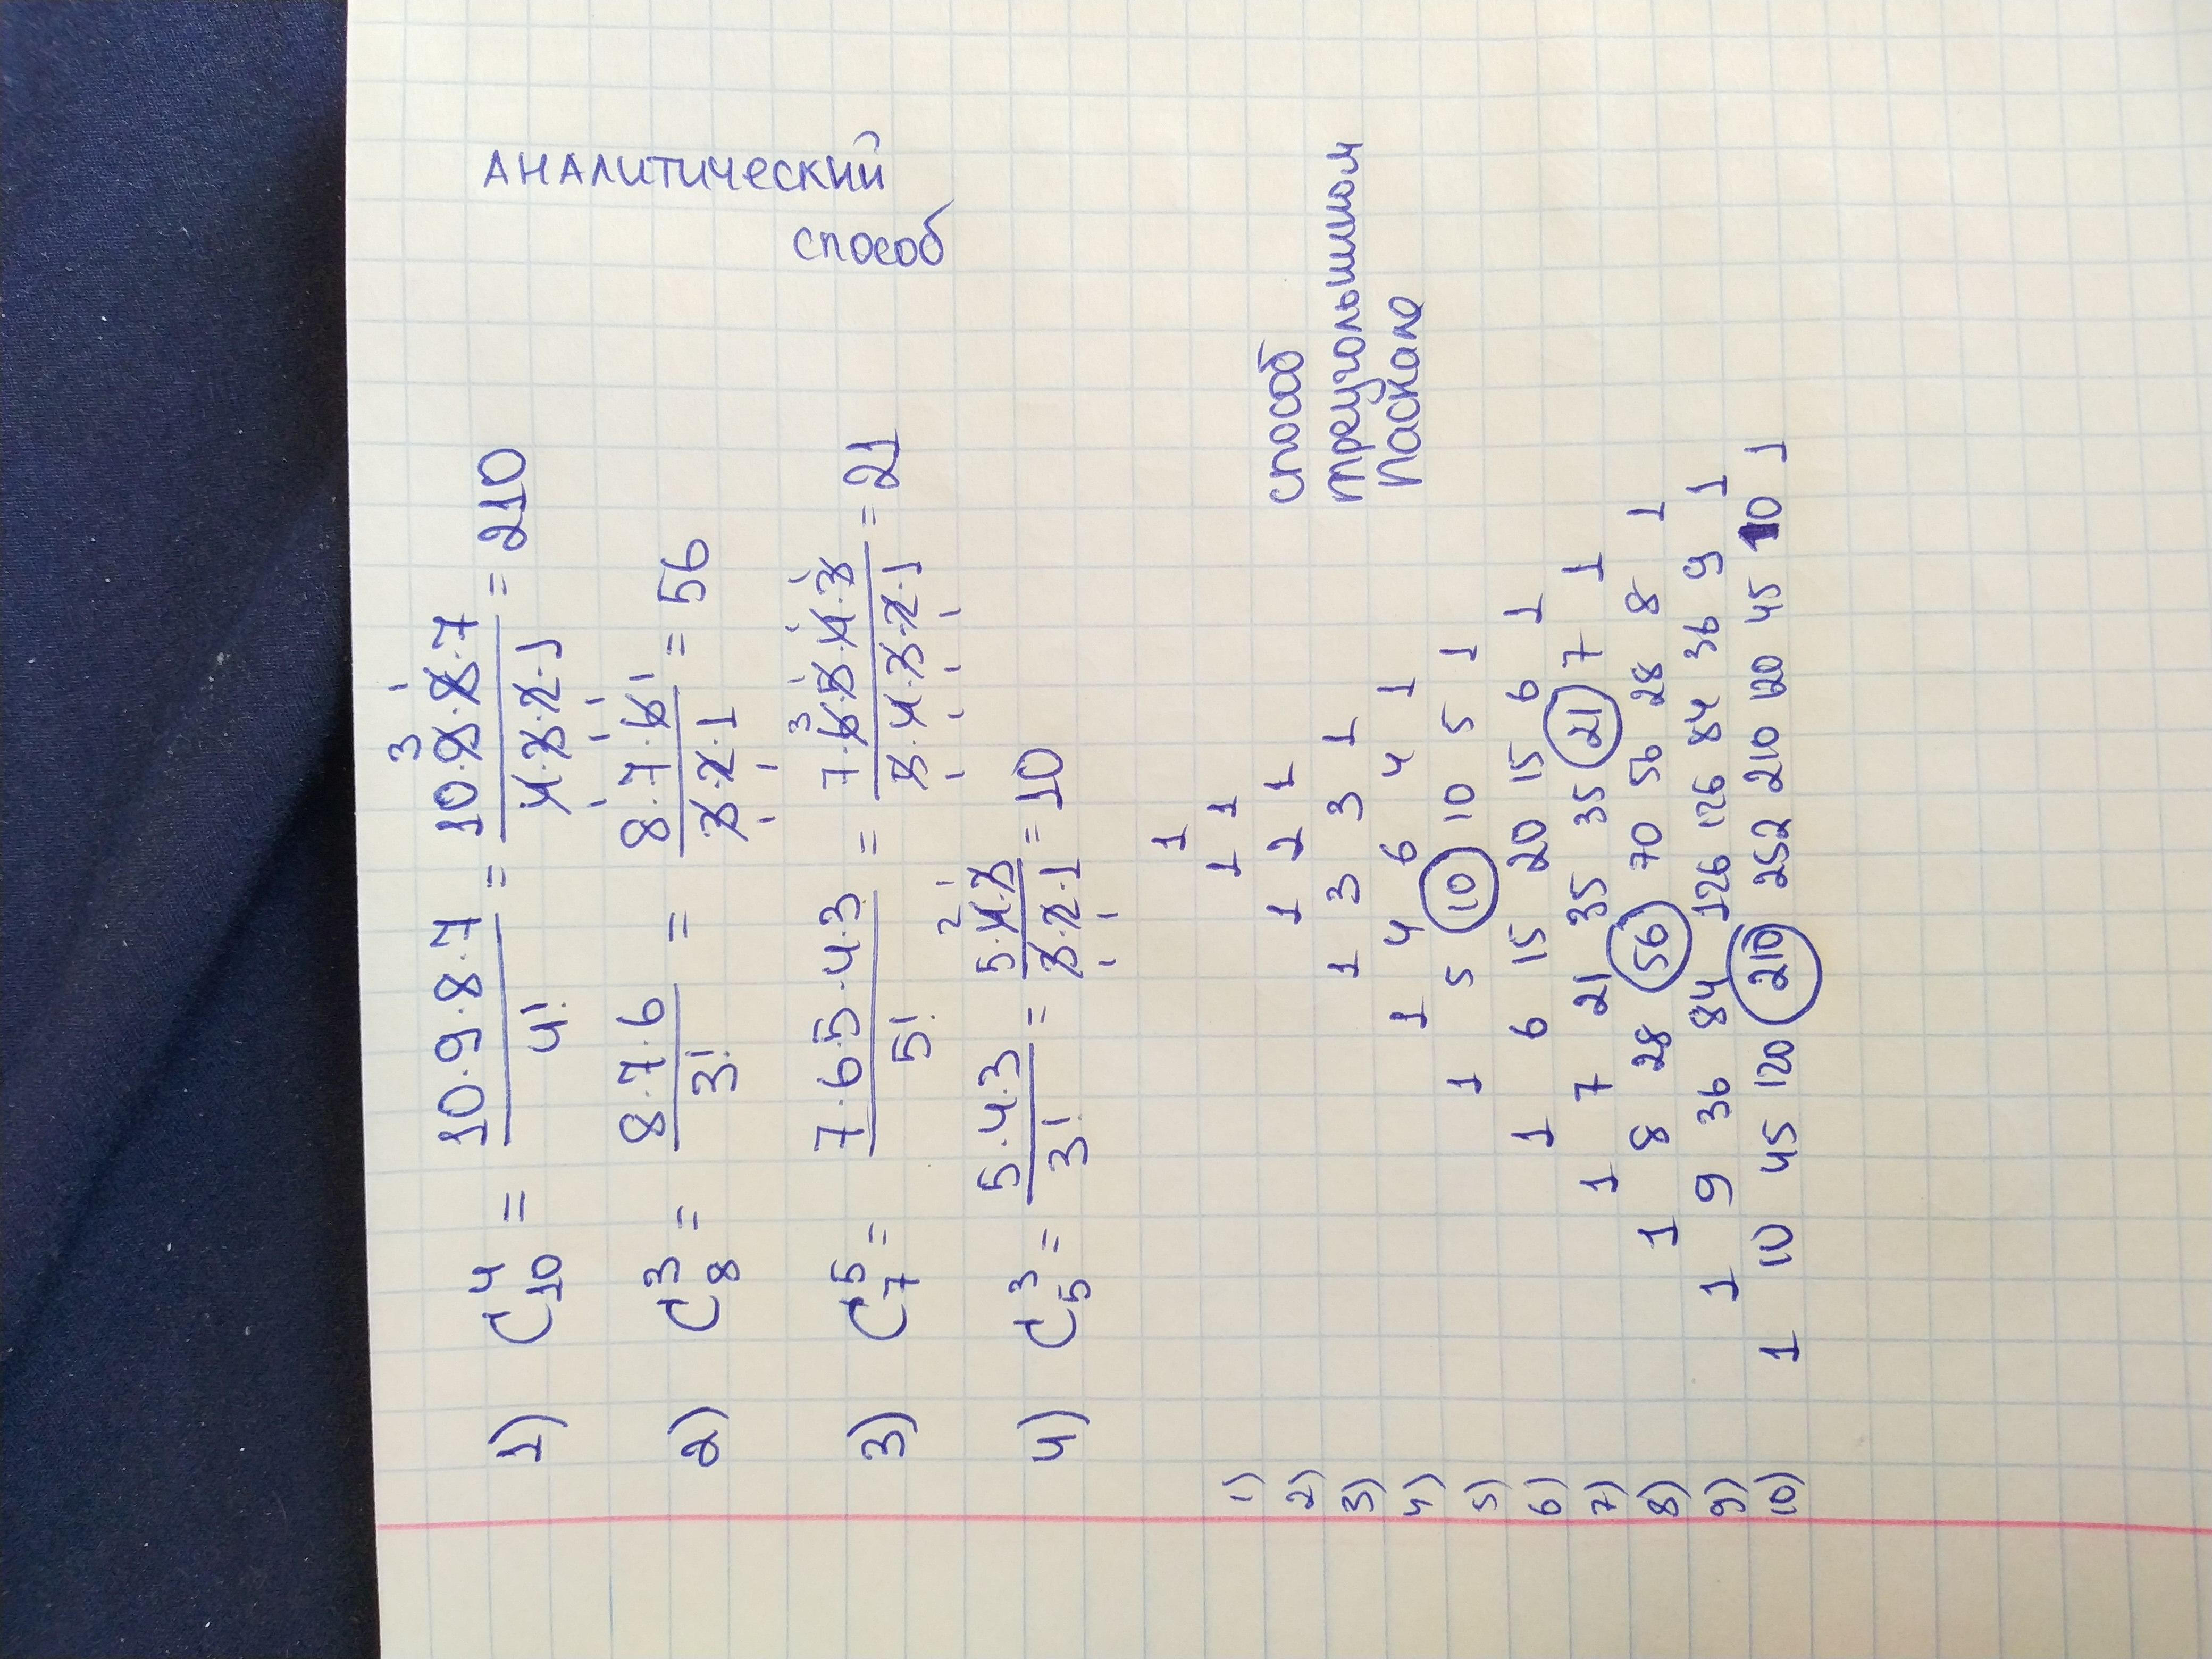 аналитический
способ
1) C₁₀⁴ = 10·9·8·7 / 4! = 10·9·8·7 / 4·3·2·1 = 210
2) C₈³ = 8·7·6 / 3! = 8·7·6 / 3·2·1 = 56
3) C₇⁵ = 7·6·5·4·3 / 5! = 7·6·5·4·3 / 5·4·3·2·1 = 21
4) C₅³ = 5·4·3 / 3! = 5·4·3 / 3·2·1 = 10
способ
треугольником
Паскаля
1
1) 1 1
2) 1 2 1
3) 1 3 3 1
4) 1 4 6 4 1
5) 1 5 10 10 5 1
6) 1 6 15 20 15 6 1
7) 1 7 21 35 35 21 7 1
8) 1 8 28 56 70 56 28 8 1
9) 1 9 36 84 126 126 84 36 9 1
10) 1 10 45 120 210 252 210 120 45 10 1